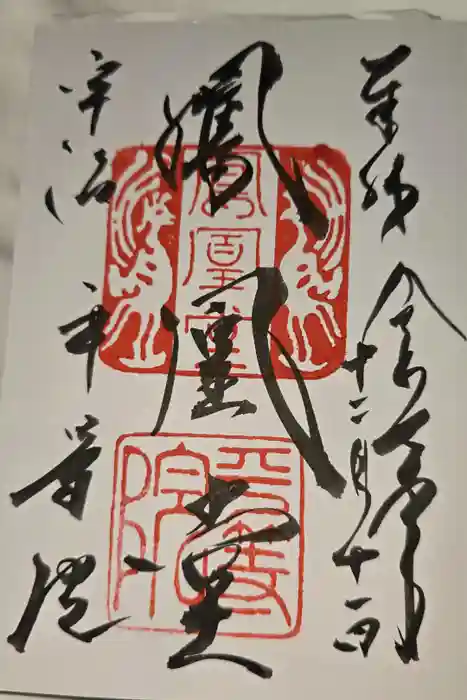 奉拝
令和
十二月十一日
鳳凰堂
宇治 平等院
鳳凰堂
平等院